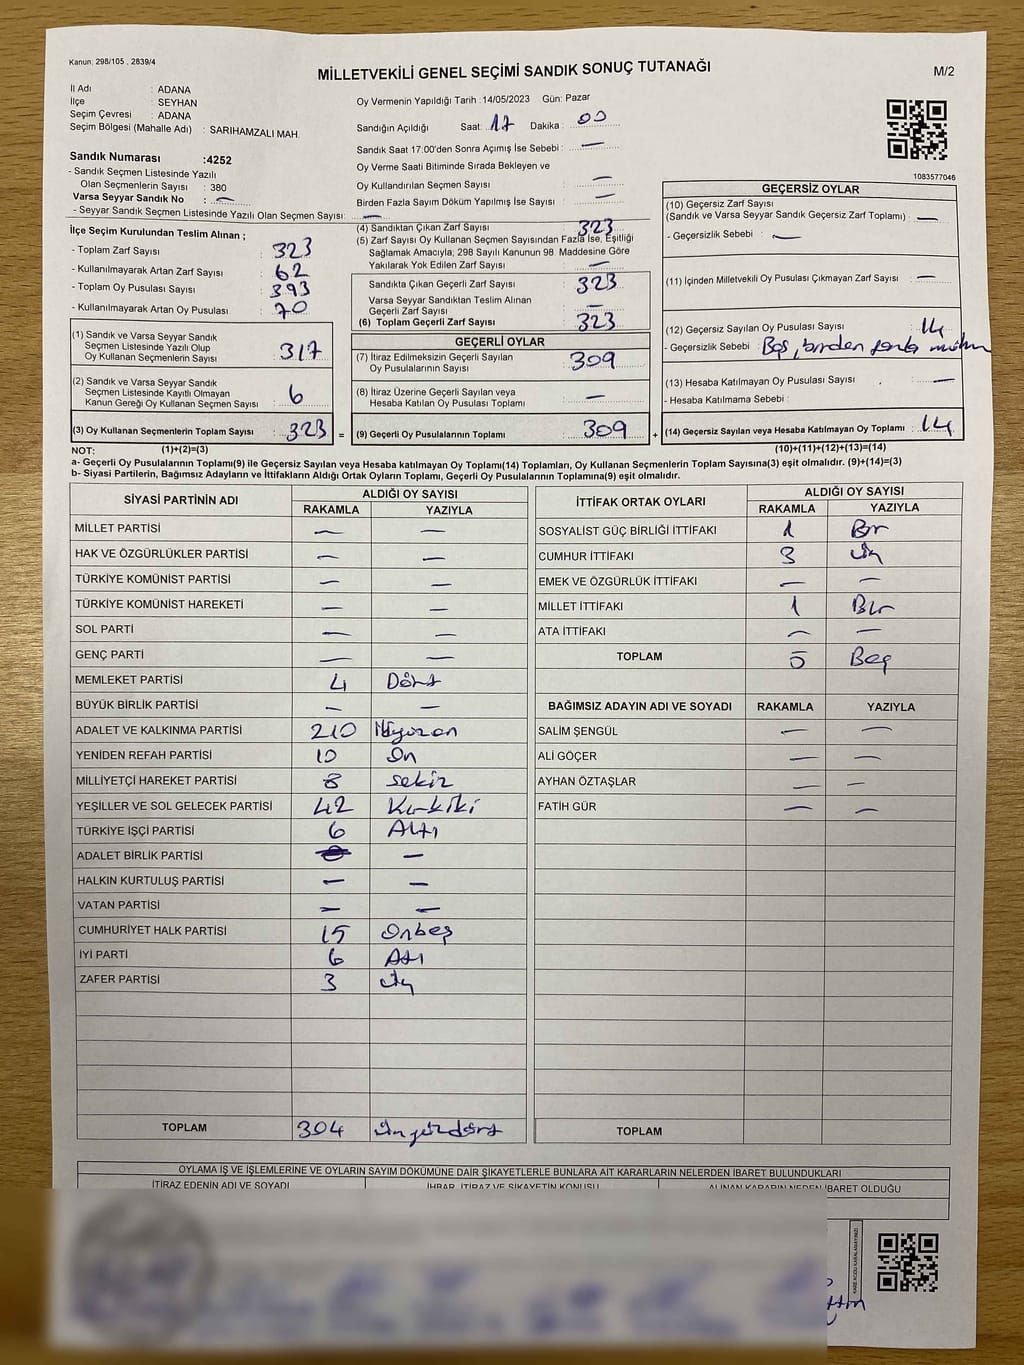 Kanun: 298/105 , 2839/4
MİLLETVEKİLİ GENEL SEÇİMİ SANDIK SONUÇ TUTANAĞI
M/2
İl Adı : ADANA
İlçe : SEYHAN
Seçim Çevresi : ADANA
Seçim Bölgesi (Mahalle Adı) : SARIHAMZALI MAH.
Oy Vermenin Yapıldığı Tarih :14/05/2023 Gün: Pazar
Sandığın Açıldığı Saat: 17 Dakika : 00
Sandık Saat 17:00'den Sonra Açımış İse Sebebi : —
Oy Verme Saati Bitiminde Sırada Bekleyen ve
Oy Kullandırılan Seçmen Sayısı —
Birden Fazla Sayım Döküm Yapılmış İse Sayısı : —
Sandık Numarası :4252
- Sandık Seçmen Listesinde Yazılı
Olan Seçmenlerin Sayısı : 380
Varsa Seyyar Sandık No : —
- Seyyar Sandık Seçmen Listesinde Yazılı Olan Seçmen Sayısı: —
1083577046
İlçe Seçim Kurulundan Teslim Alınan ;
- Toplam Zarf Sayısı : 323
- Kullanılmayarak Artan Zarf Sayısı : 62
- Toplam Oy Pusulası Sayısı : 393
- Kullanılmayarak Artan Oy Pusulası : 70
(1) Sandık ve Varsa Seyyar Sandık
Seçmen Listesinde Yazılı Olup
Oy Kullanan Seçmenlerin Sayısı : 317
(2) Sandık ve Varsa Seyyar Sandık
Seçmen Listesinde Kayıtlı Olmayan
Kanun Gereği Oy Kullanan Seçmen Sayısı : 6
(3) Oy Kullanan Seçmenlerin Toplam Sayısı : 323 =
(4) Sandıktan Çıkan Zarf Sayısı : 323
(5) Zarf Sayısı Oy Kullanan Seçmen Sayısından Fazla İse, Eşitliği
Sağlamak Amacıyla, 298 Sayılı Kanunun 98 Maddesine Göre
Yakılarak Yok Edilen Zarf Sayısı : —
Sandıkta Çıkan Geçerli Zarf Sayısı : 323
Varsa Seyyar Sandıktan Teslim Alınan
Geçerli Zarf Sayısı : —
(6) Toplam Geçerli Zarf Sayısı : 323
GEÇERLİ OYLAR
(7) İtiraz Edilmeksizin Geçerli Sayılan
Oy Pusulalarının Sayısı : 309
(8) İtiraz Üzerine Geçerli Sayılan veya
Hesaba Katılan Oy Pusulası Toplamı : —
(9) Geçerli Oy Pusulalarının Toplamı : 309 +
GEÇERSİZ OYLAR
(10) Geçersiz Zarf Sayısı
(Sandık ve Varsa Seyyar Sandık Geçersiz Zarf Toplamı) : —
- Geçersizlik Sebebi : —
(11) İçinden Milletvekili Oy Pusulası Çıkmayan Zarf Sayısı : —
(12) Geçersiz Sayılan Oy Pusulası Sayısı : 14
- Geçersizlik Sebebi : Boş, birden fazla mühür
(13) Hesaba Katılmayan Oy Pusulası Sayısı : —
- Hesaba Katılmama Sebebi :
(14) Geçersiz Sayılan veya Hesaba Katılmayan Oy Toplamı : 14
NOT: (1)+(2)=(3) (10)+(11)+(12)+(13)=(14)
a- Geçerli Oy Pusulalarının Toplamı(9) ile Geçersiz Sayılan veya Hesaba katılmayan Oy Toplamı(14) Toplamları, Oy Kullanan Seçmenlerin Toplam Sayısına(3) eşit olmalıdır. (9)+(14)=(3)
b- Siyasi Partilerin, Bağımsız Adayların ve İttifakların Aldığı Ortak Oyların Toplamı, Geçerli Oy Pusulalarının Toplamına(9) eşit olmalıdır.
SİYASİ PARTİNİN ADI ALDIĞI OY SAYISI
RAKAMLA YAZIYLA
MİLLET PARTİSİ — —
HAK VE ÖZGÜRLÜKLER PARTİSİ — —
TÜRKİYE KOMÜNİST PARTİSİ — —
TÜRKİYE KOMÜNİST HAREKETİ — —
SOL PARTİ — —
GENÇ PARTİ — —
MEMLEKET PARTİSİ 4 Dört
BÜYÜK BİRLİK PARTİSİ — —
ADALET VE KALKINMA PARTİSİ 210 İkiyüzon
YENİDEN REFAH PARTİSİ 10 On
MİLLİYETÇİ HAREKET PARTİSİ 8 Sekiz
YEŞİLLER VE SOL GELECEK PARTİSİ 42 Kırkiki
TÜRKİYE İŞÇİ PARTİSİ 6 Altı
ADALET BİRLİK PARTİSİ — —
HALKIN KURTULUŞ PARTİSİ — —
VATAN PARTİSİ — —
CUMHURİYET HALK PARTİSİ 15 Onbeş
İYİ PARTİ 6 Altı
ZAFER PARTİSİ 3 Üç
TOPLAM 304 Üçyüzdört
İTTİFAK ORTAK OYLARI ALDIĞI OY SAYISI
RAKAMLA YAZIYLA
SOSYALİST GÜÇ BİRLİĞİ İTTİFAKI 1 Bir
CUMHUR İTTİFAKI 3 Üç
EMEK VE ÖZGÜRLÜK İTTİFAKI — —
MİLLET İTTİFAKI 1 Bir
ATA İTTİFAKI — —
TOPLAM 5 Beş
BAĞIMSIZ ADAYIN ADI VE SOYADI RAKAMLA YAZIYLA
SALİM ŞENGÜL — —
ALİ GÖÇER — —
AYHAN ÖZTAŞLAR — —
FATİH GÜR — —
TOPLAM
OYLAMA İŞ VE İŞLEMLERİNE VE OYLARIN SAYIM DÖKÜMÜNE DAİR ŞİKAYETLERLE BUNLARA AİT KARARLARIN NELERDEN İBARET BULUNDUKLARI
İTİRAZ EDENİN ADI VE SOYADI İHBAR, İTİRAZ VE ŞİKAYETİN KONUSU ALINAN KARARIN NEDEN İBARET OLDUĞU